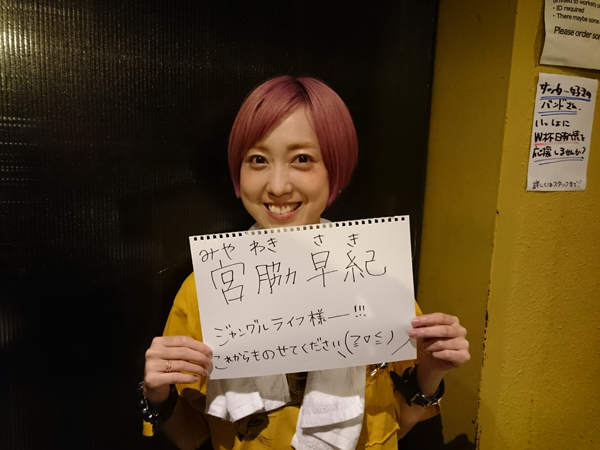 みや わき さ き
宮脇 早紀
ジャングルライフ様ー!!!
これからものせてください(≧▽≦)ノ
・ID required
・There maybe some
Please order som
サッカー好きの
バンドさん、
いっしょに
W杯日本代表を
応援しませんか?
詳しくはスタッフまで!!